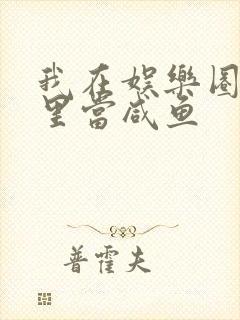 我在娱乐圈
里当咸鱼
普霍夫